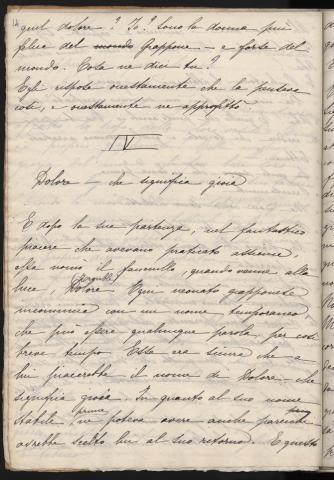 14
quel dolore? Io? Sono la donna più
felice del mondo Giappone – e forse del
mondo. Cosa ne dici tu?
Egli rispose onestamente che la pensava
così, e onestamente ne approfittò.
IV
Dolore – che significa gioia
E dopo la sua partenza, nel fantastico
piacere che avevano praticato assieme,
essa nomò il fanciullo, quando venne alla
luce, Dolore. Ogni neonato giapponese
incomincia con un nome temporaneo
che può essere qualunque parola per così
breve tempo. Essa era sicura che a
lui piacerebbe il nome di Dolore – che
significa gioia. In quanto al suo nome
stabile, ne poteva avere anche parecchi prima
avrebbe scelto lui al suo ritorno. E questo